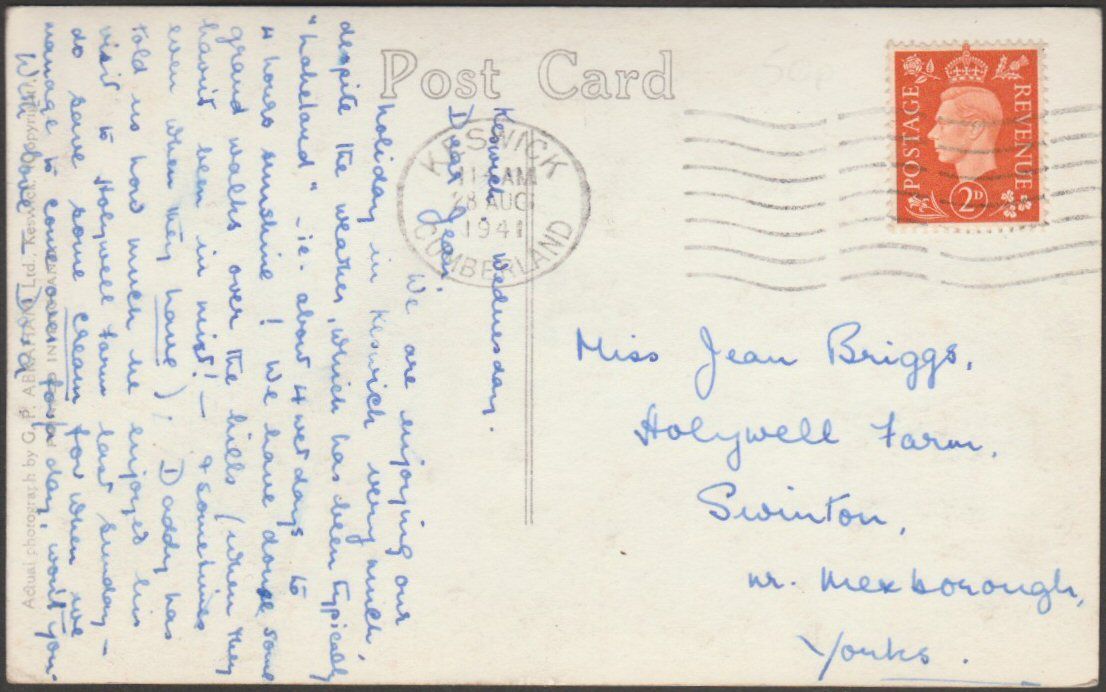 Post Card
POSTAGE
REVENUE
2D
KESWICK
11-AM
8 AUG
1941
CUMBERLAND
Keswick. Wednesday.
Dear Jean,
We are enjoying our
holiday in Keswick very much,
despite the weather, which has been typically
"lakeland" - ie. about 4 wet days to
4 hours sunshine! We have done some
grand walks over the hills (when they
havn't been in mist! - & sometimes
even when they have); Daddy has
told us how much he enjoyed his
visit to Holywell Farm last Sunday -
do save some cream for when we
manage to come over for a day, won't you.
With love
Actual photograph by G. P. ABRAHAM, Ltd., Keswick. (Copyright).
IN ENGLAND
Miss Jean Briggs,
Holywell Farm,
Swinton,
nr. Mexborough,
Yorks.